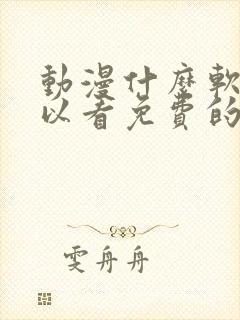 動漫什麼軟
以看免費的
雯舟舟